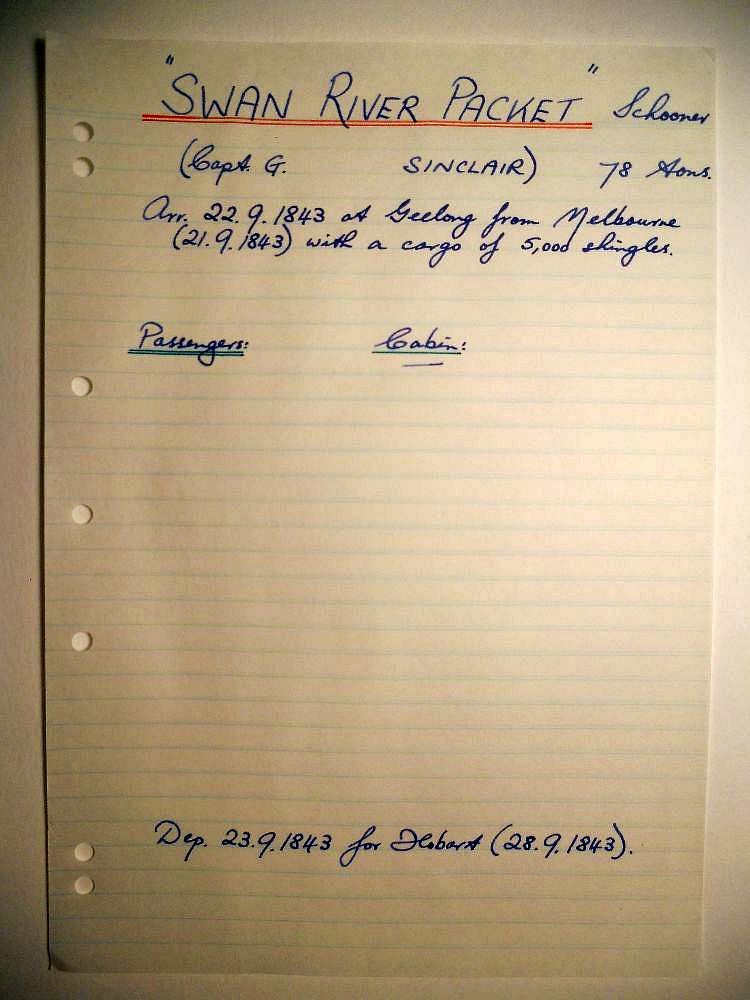 "SWAN RIVER PACKET" Schooner
(Capt. G. SINCLAIR) 78 tons.
Arr. 22.9.1843 at Geelong from Melbourne
(21.9.1843) with a cargo of 5,000 shingles.
Passengers: Cabin:
Dep. 23.9.1843 for Hobart (28.9.1843).